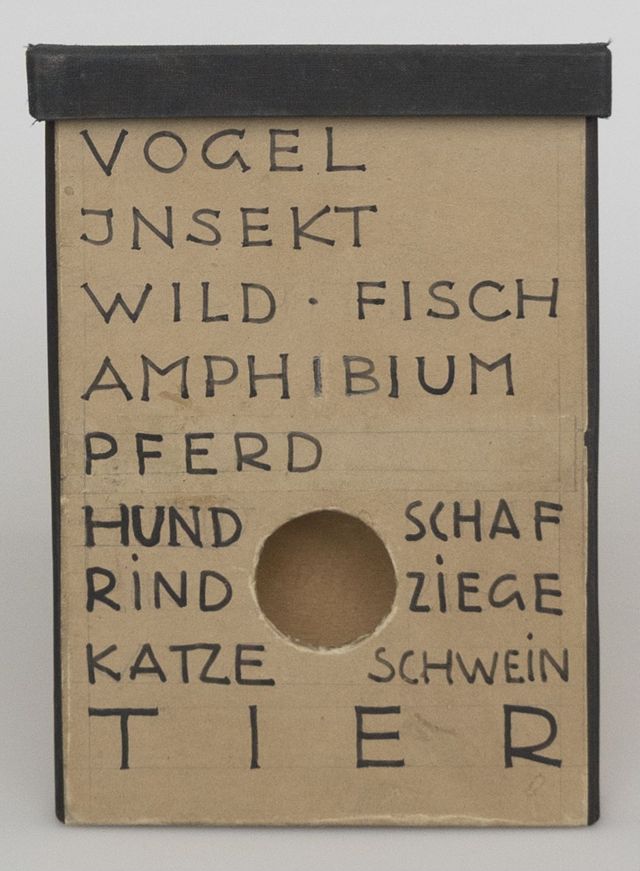 VOGEL
JNSEKT
WILD · FISCH
AMPHIBIUM
PFERD
HUND SCHAF
RiND ZiEGE
KATZE SCHWEiN
TIER